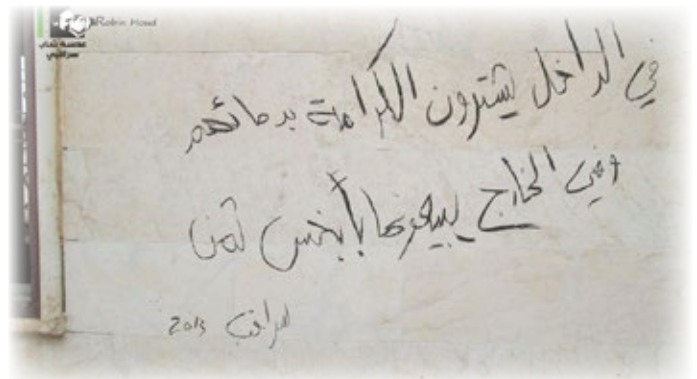 Robin Hood
عدسة شاب سراقبي
في الداخل يشترون الكرامة بدمائهم
وفي الخارج يبيعونها بأبخس ثمن
سراقب 2013